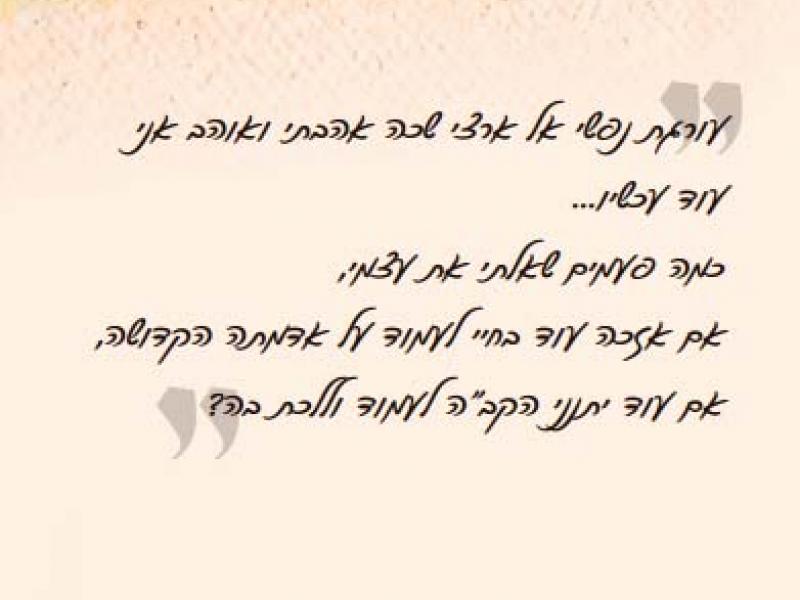 עורגת נפשי אל ארצי שכה אהבתי ואוהב אני
עוד עכשיו...
כמה פעמים שאלתי את עצמי,
אם אזכה עוד בחיי לעמוד על אדמתה הקדושה,
אם עוד יתנני הקב"ה לעמוד וללכת בה?